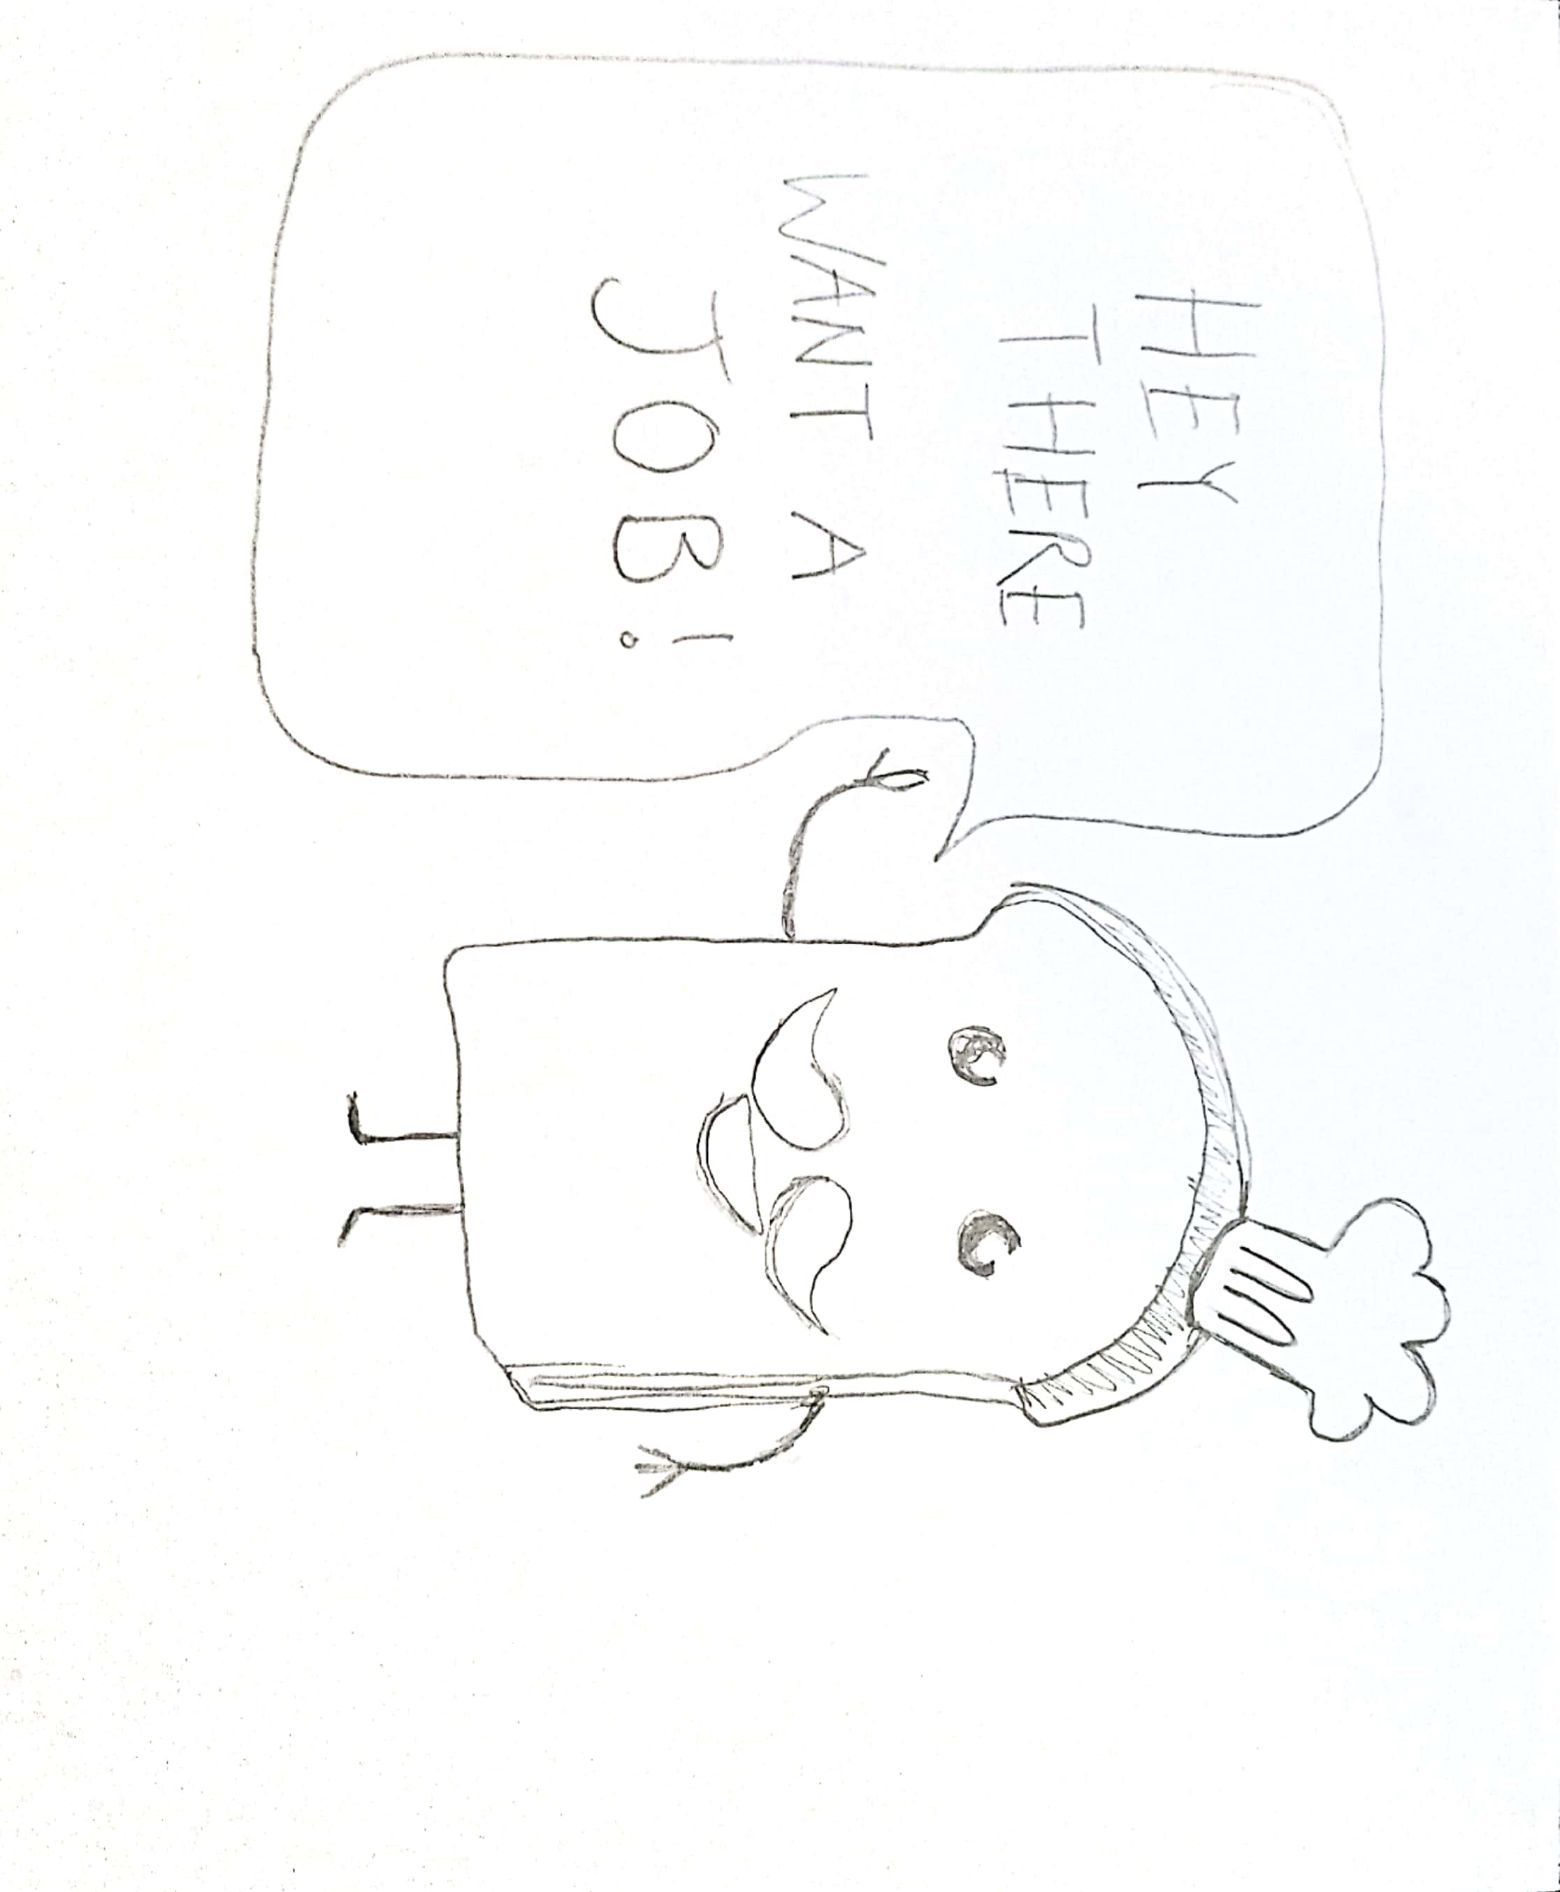 HEY
THERE
WANT A
JOB!